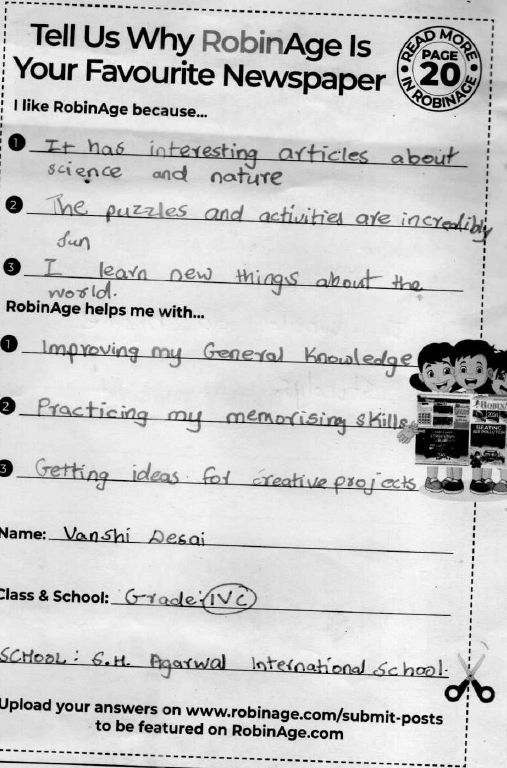 Tell Us Why RobinAge Is
Your Favourite Newspaper
READ MORE
PAGE
20
IN ROBINAGE
I like RobinAge because...
1 It has interesting articles about
science and nature
2 The puzzles and activities are incredibly
fun
3 I learn new things about the
world.
RobinAge helps me with...
1 Improving my General Knowledge
2 Practicing my memorising skills
3 Getting ideas for creative projects
Name: Vanshi Desai
Class & School: Grade: IVC
SCHOOL: S.H. Agarwal International School.
Upload your answers on www.robinage.com/submit-posts
to be featured on RobinAge.com